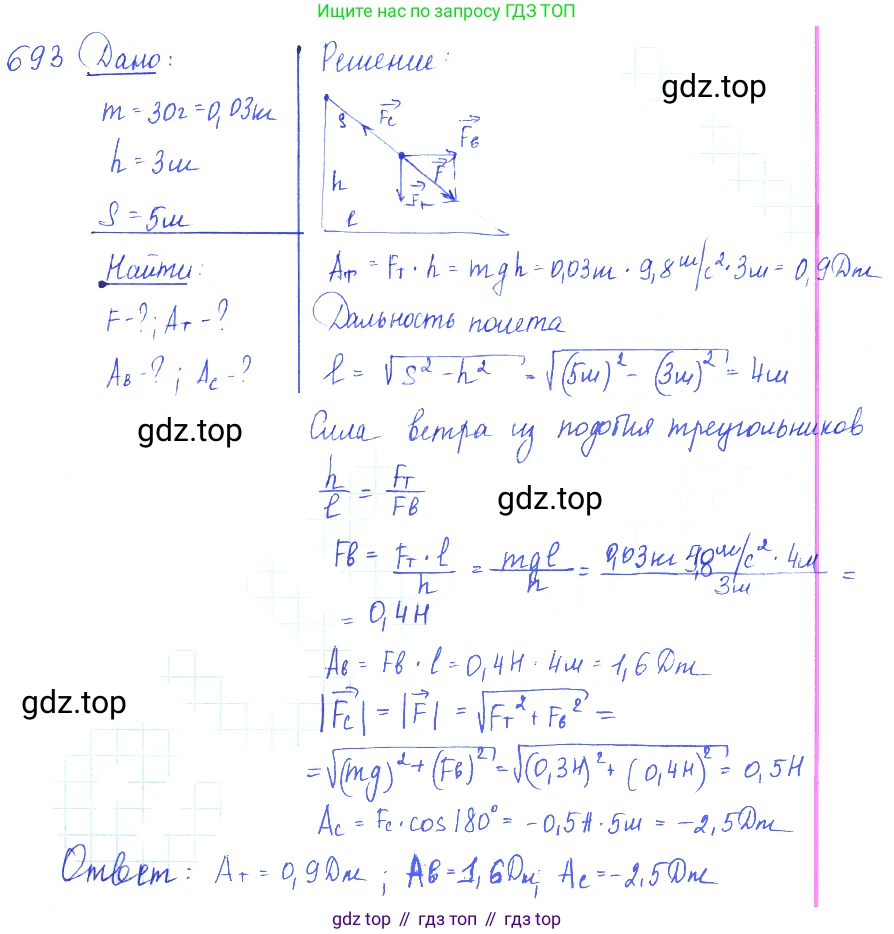 Ищите нас по запросу ГДЗ ТОП
693 Дано:
m = 30г = 0,03кг
h = 3м
S = 5м
Найти:
F - ?; Aт - ?
Aв - ?; Aс - ?
Решение:
gdz.top
S Fс
Fв
h F
Fт
l
Aт = Fт · h = mgh = 0,03кг · 9,8 м/с² · 3м = 0,9Дж
Дальность полета
l = √(S² - h²) = √((5м)² - (3м)²) = 4м
Сила ветра из подобия треугольников
gdz.top
h/l = Fт/Fв
gdz.top
Fв = Fт · l / h = mgl / h = 0,03кг 9,8 м/с² · 4м / 3м =
= 0,4Н
Aв = Fв · l = 0,4Н · 4м = 1,6Дж
|Fс| = |F| = √(Fт² + Fв²) =
gdz.top
= √((mg)² + (Fв)²) = √((0,3Н)² + (0,4Н)²) = 0,5Н
Aс = Fс · cos180° = -0,5Н · 5м = -2,5Дж
Ответ: Aт = 0,9Дж; Aв = 1,6Дж; Aс = -2,5Дж
gdz.top // гдз топ // гдз.top